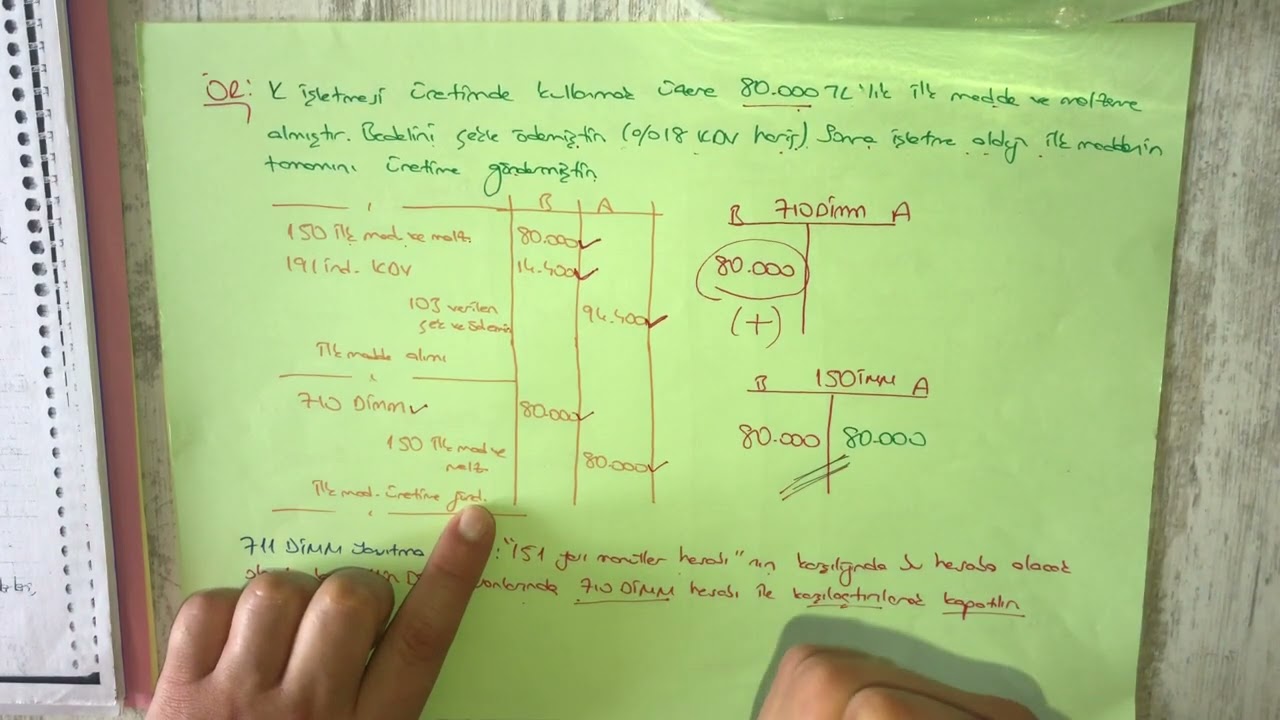 ÖR: K işletmesi üretimde kullanmak üzere 80.000 TL'lik ilk madde ve malzeme
almıştır. Bedelini çekle ödemiştir (%18 KDV hariç) Sonra işletme aldığı ilk maddenin
tamamını üretime göndermiştir.
B A
150 ilk mad. ve malz. 80.000
191 ind. KDV 14.400
103 verilen
çek ve ödemin 94.400
İlk madde alımı
710 DİMM 80.000
150 ilk mad ve
malz. 80.000
ilk mad. üretime gönd.
B 710 DİMM A
80.000
(+)
B 150 İMM A
80.000 80.000
711 DİMM Yansıtma : "151 yarı mamüller hesabı"nın karşılığında bu hesaba alacak
sonlarında 710 DİMM hesabı ile karşılaştırılarak kapatılır